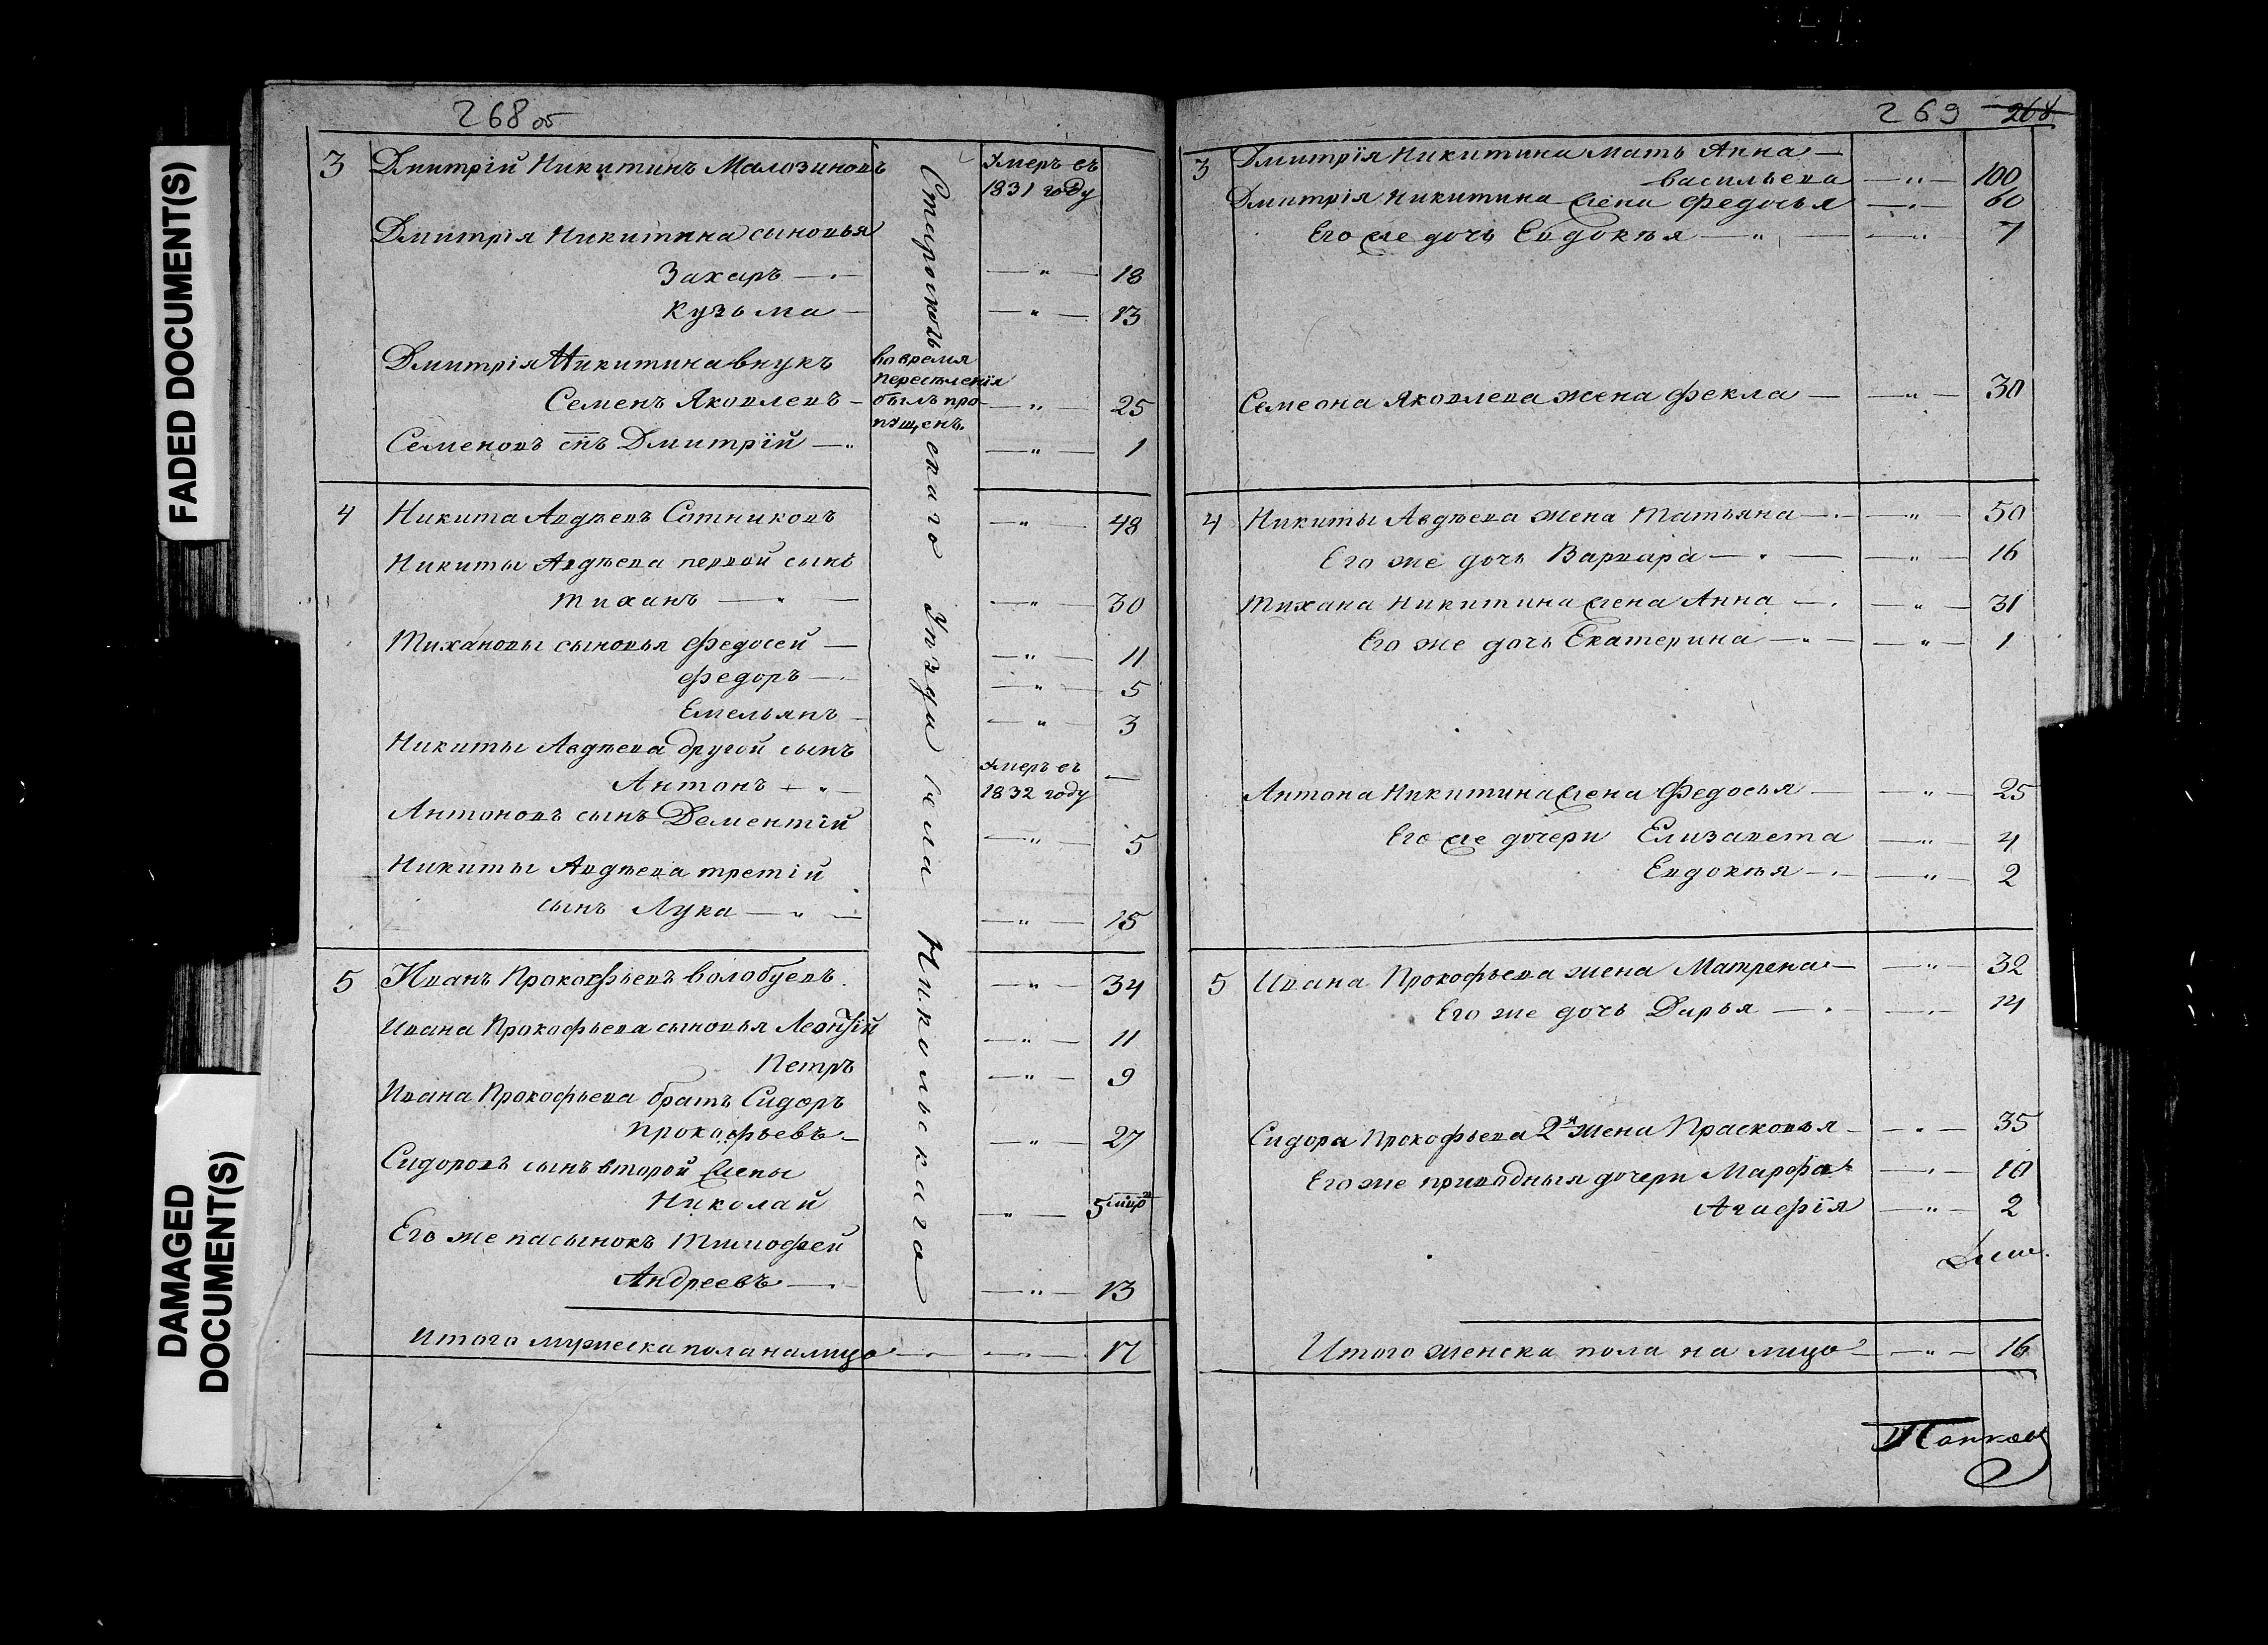 FADED DOCUMENT(S)
DAMAGED
DOCUMENT(S)
268 об
3 Дмитрій Никитинъ Малозиновъ Умеръ въ
1831 году
Дмитрія Никитина сыновья
Захаръ — " — 18
Кузьма — " — 13
Дмитрія Никитина внукъ во время
переселенія
Семенъ Яковлевъ — былъ про- — " — 25
пущенъ.
Семеновъ снъ Дмитрій — " — 1
4 Никита Авдѣевъ Сотниковъ — " — 48
Никиты Авдѣева первой сынъ
Тиханъ — " — 30
Тихановы сыновья Федосей — " — 11
Федоръ — " — 5
Емельянъ — " — 3
Никиты Авдѣева другой сынъ
Антонъ — " — Умеръ въ —
1832 году
Антоновъ сынъ Дементій — " — 5
Никиты Авдѣева третій
сынъ Лука — " — 15
5 Иванъ Прокофьевъ Волобуевъ — " — 34
Ивана Прокофьева сыновья Леонтій — " — 11
Петръ — " — 9
Ивана Прокофьева братъ Сидоръ
Прокофьевъ — " — 27
Сидоровъ сынъ второй жены
Николай — " — 5
Его же пасынокъ Тимофей
Андреевъ — " — 13
Итого мужеска пола налицо — " — 17
Старооскольскаго Уѣзда села Никольскаго
269 268
3 Дмитрія Никитина мать Анна —
Васильева — " — 100
Дмитрія Никитина жена Федосья — " — 60
Его же дочь Евдокѣя — " — 7
Семеона Яковлева жена Фекла — " — 30
4 Никиты Авдѣева жена Татьяна — " — 50
Его же дочь Варвара — " — 16
Тихана Никитина жена Анна — " — 31
Его же дочь Екатерина — " — 1
Антона Никитина жена Федосья — " — 25
Его же дочери Елизавета — " — 4
Евдокѣя — " — 2
5 Ивана Прокофьева жена Матрена — " — 32
Его же дочь Дарья — " — 14
Сидора Прокофьева 2я жена Прасковья — " — 35
Его же приводныя дочери Марфа — " — 10
Агафія — " — 2
Итого женска пола на лицо — " — 16